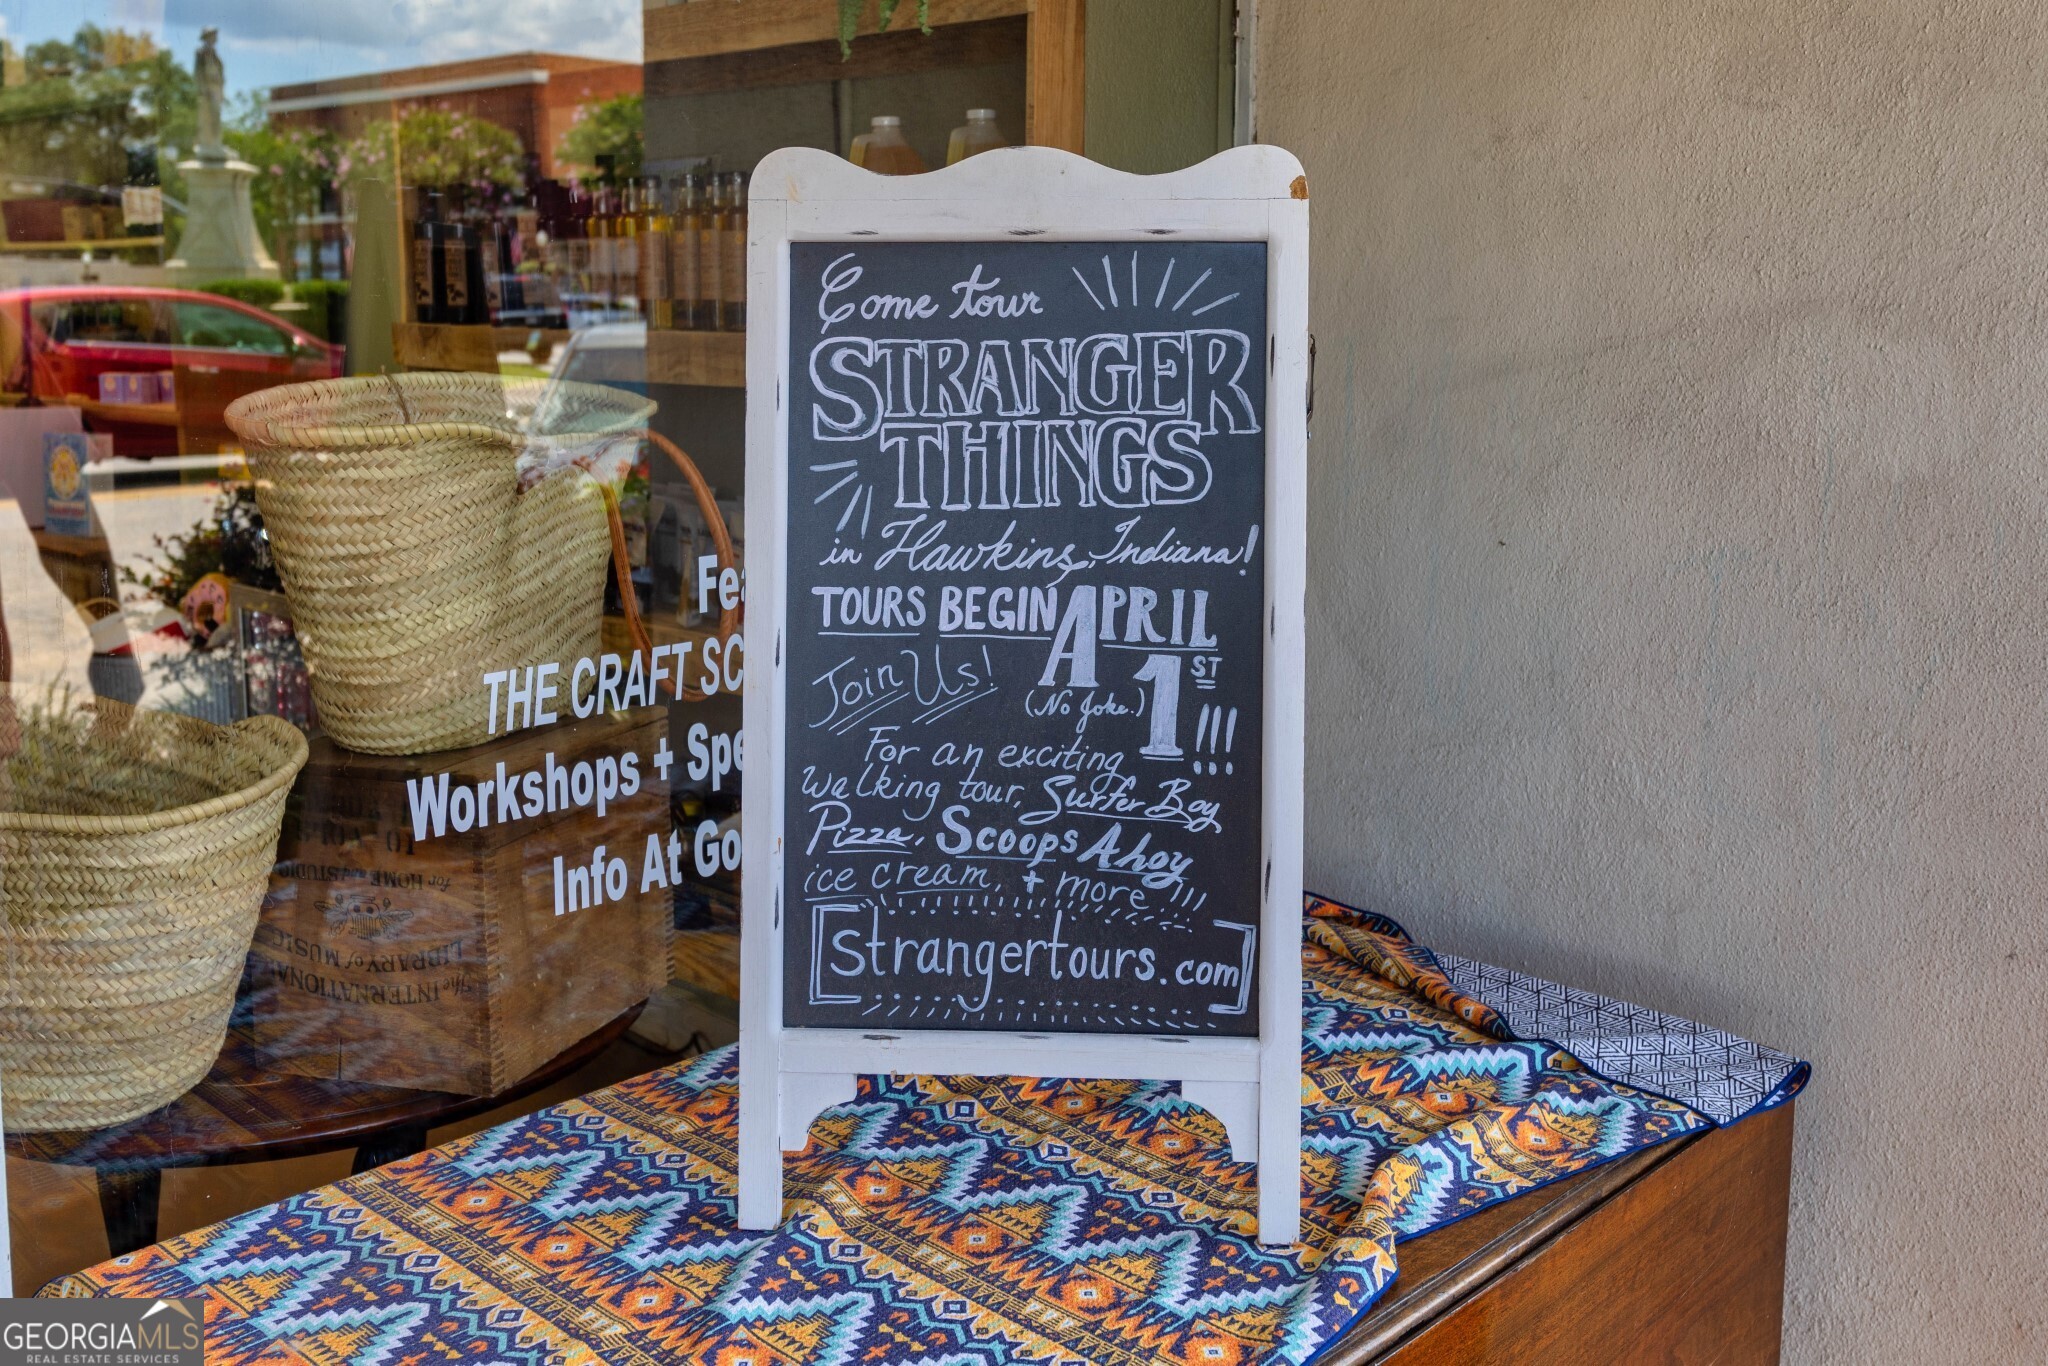 Come tour
STRANGER
THINGS
in Hawkins, Indiana!
TOURS BEGIN APRIL
1ST !!!
Join Us!
(No Joke.)
For an exciting
walking tour, Surfer Boy
Pizza, Scoops Ahoy
ice cream, + more!!!
[strangertours.com]
Fea
THE CRAFT SC
Workshops + Spe
Info At Go
for HOME and STUDIO
The INTERNATIONAL
LIBRARY of MUSIC
GEORGIAMLS
REAL ESTATE SERVICES